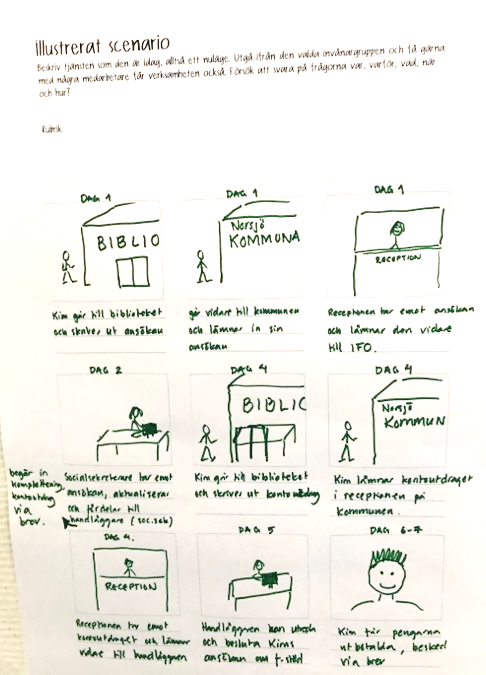 Illustrerat scenario
Beskriv tjänsten som den är idag, alltså ett nuläge. Utgå ifrån den valda invånargruppen och få gärna
med några medarbetare får verksamheten också. Försök att svara på frågorna var, varför, vad, när
och hur?
Rubrik
DAG 1
BIBLIO
Kim går till biblioteket
och skriver ut ansökan
DAG 1
Norsjö
KOMMUNA
går vidare till kommunen
och lämnar in sin
ansökan
DAG 1
RECEPTION
Receptionen tar emot ansökan
och lämnar den vidare
till IFO.
DAG 2
Socialsekreterare tar emot
ansökan, aktualiserar
och fördelar till
handläggare (soc.sek)
begär in
komplettering
kontoutdrag
via
brev.
DAG 4
BIBLIC
Kim går till biblioteket
och skriver ut kontoutdrag
DAG 4
Norsjö
KOMMUN
Kim lämnar kontoutdraget
i receptionen på
kommunen.
DAG 4.
RECEPTION
Receptionen tar emot
kontoutdraget och lämnar
vidare till handläggaren
DAG 5
Handläggaren kan utreda
och besluta Kims
ansökan om f-stöd
DAG 6-7
Kim får pengarna
utbetalda, besked
via brev